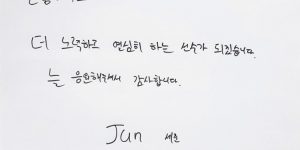 더 노력하고 연심히 하는 선수가 되겠습니다.
늘 응원해주셔서 감사합니다.
Jun